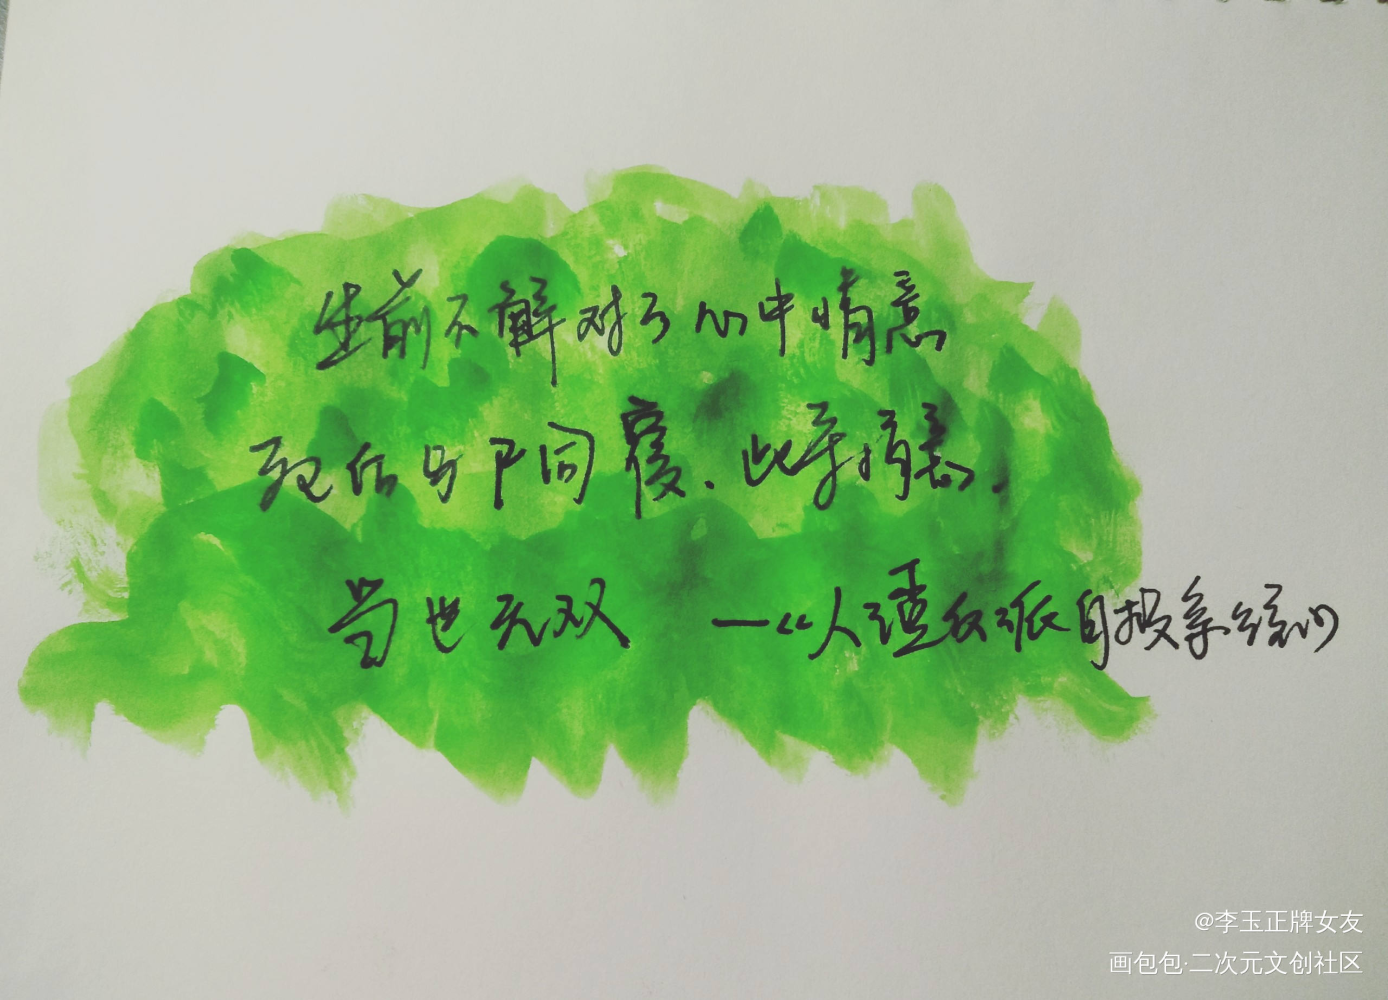 生前不解对方心中情意
死后与尸同覆、此等情意.
当世无双 —《人渣反派自救系统》
@李玉正牌女友
画包包·二次元文创社区